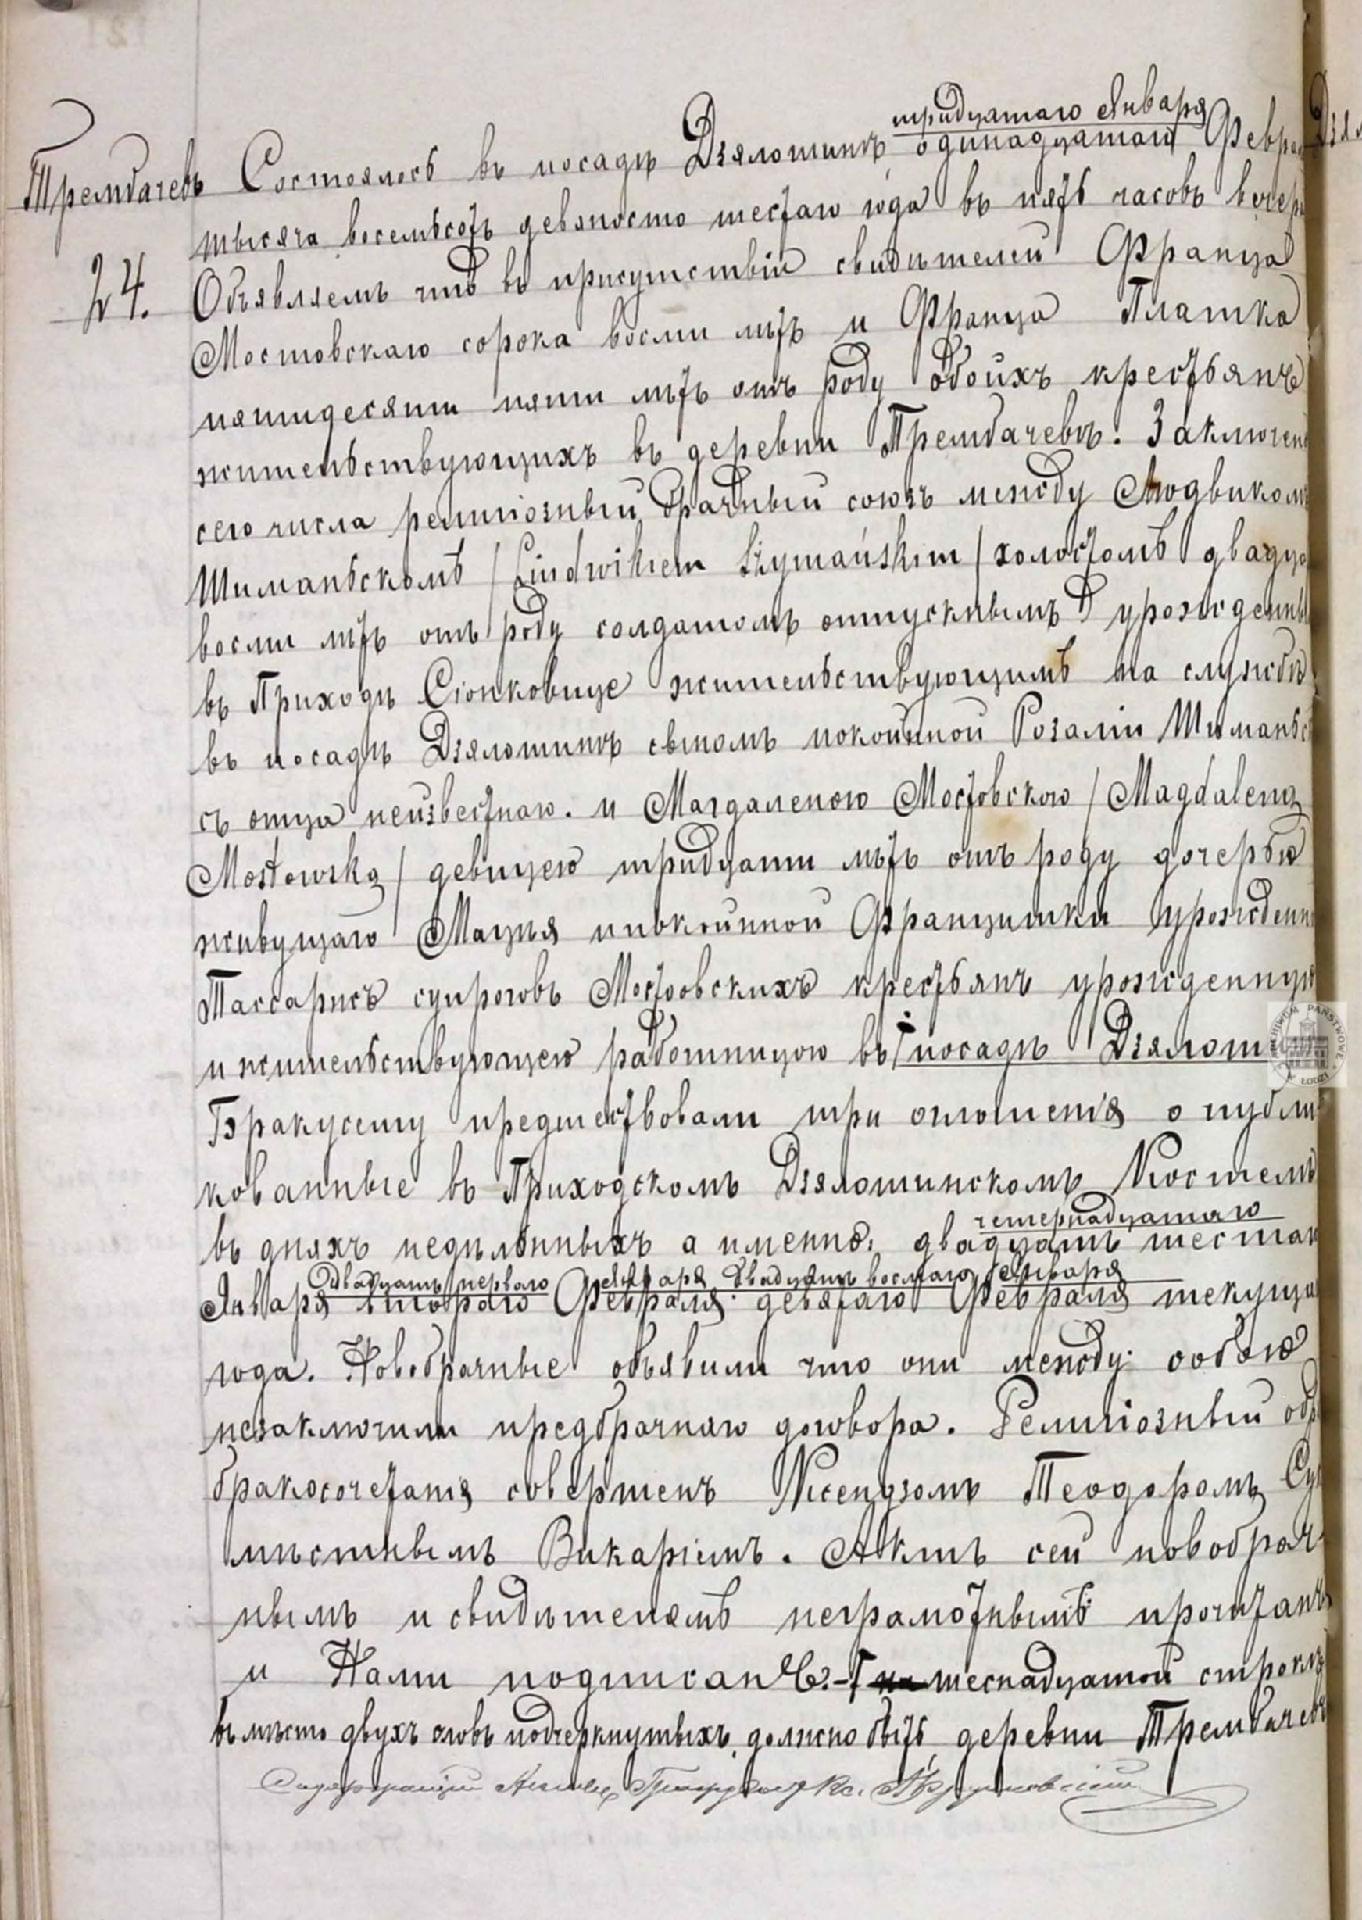 тридцатаго Января
Трембачевъ Состоялось въ посадѣ Дзялошинѣ одинадцатаго Февра
24.
тысяча восемьсотъ девяносто шестаго года въ пять часовъ вечера
Объявляемъ что въ присутствіи свидѣтелей Франца
Мостовскаго сорока восми лѣтъ и Франца Платка
пятидесяти пяти лѣтъ отъ роду обоихъ крестьянъ
жительствующихъ въ деревни Трембачевѣ. Заключенъ
сего числа религіозный брачный союзъ между Людвикомъ
Шиманьскомъ / Liudwikiem Szymańskim / холостомъ двадца
восми лѣтъ отъ роду солдатомъ отпускнымъ урожденны
въ Приходѣ Сіонковице жительствующимъ на службѣ
въ посадѣ Дзялошинѣ сыномъ покойной Розаліи Шиманьс
съ отца неизвестнаго. и Магдаленою Мостовскою / Magdaleną
Mostowską / девицею тридцати лѣтъ отъ роду дочерью
живущаго Мацѣя и покойной Францишки урожденн
Тассарисъ супруговъ Мостовскихъ крестьянъ урожденную
и жительствующею работницою въ посадѣ Дзялош
Браку сему предшествовали три оглошенія опубли
кованные въ Приходскомъ Дзялошинскомъ Костелѣ
четернадцатаго
въ дняхъ недѣльныхъ а именно: двадцать шестаго
двадцать перваго Января двадцать восмаго Января
Января втораго Февраля девятаго Февраля текуща
года. Новобрачные объявили что они между собою
незаключили предбрачнаго договора. Религіозный обр
бракосочетанія совершенъ Ксендзомъ Теодоромъ
мѣстнымъ Викаріемъ. Актъ сей новобрач-
нымъ и свидѣтелямъ неграмотнымъ прочитанъ
и Нами подписанъ.- шеснадцатой строкѣ
вмѣсто двухъ словъ подчеркнутыхъ должно быть деревни Трембачевѣ